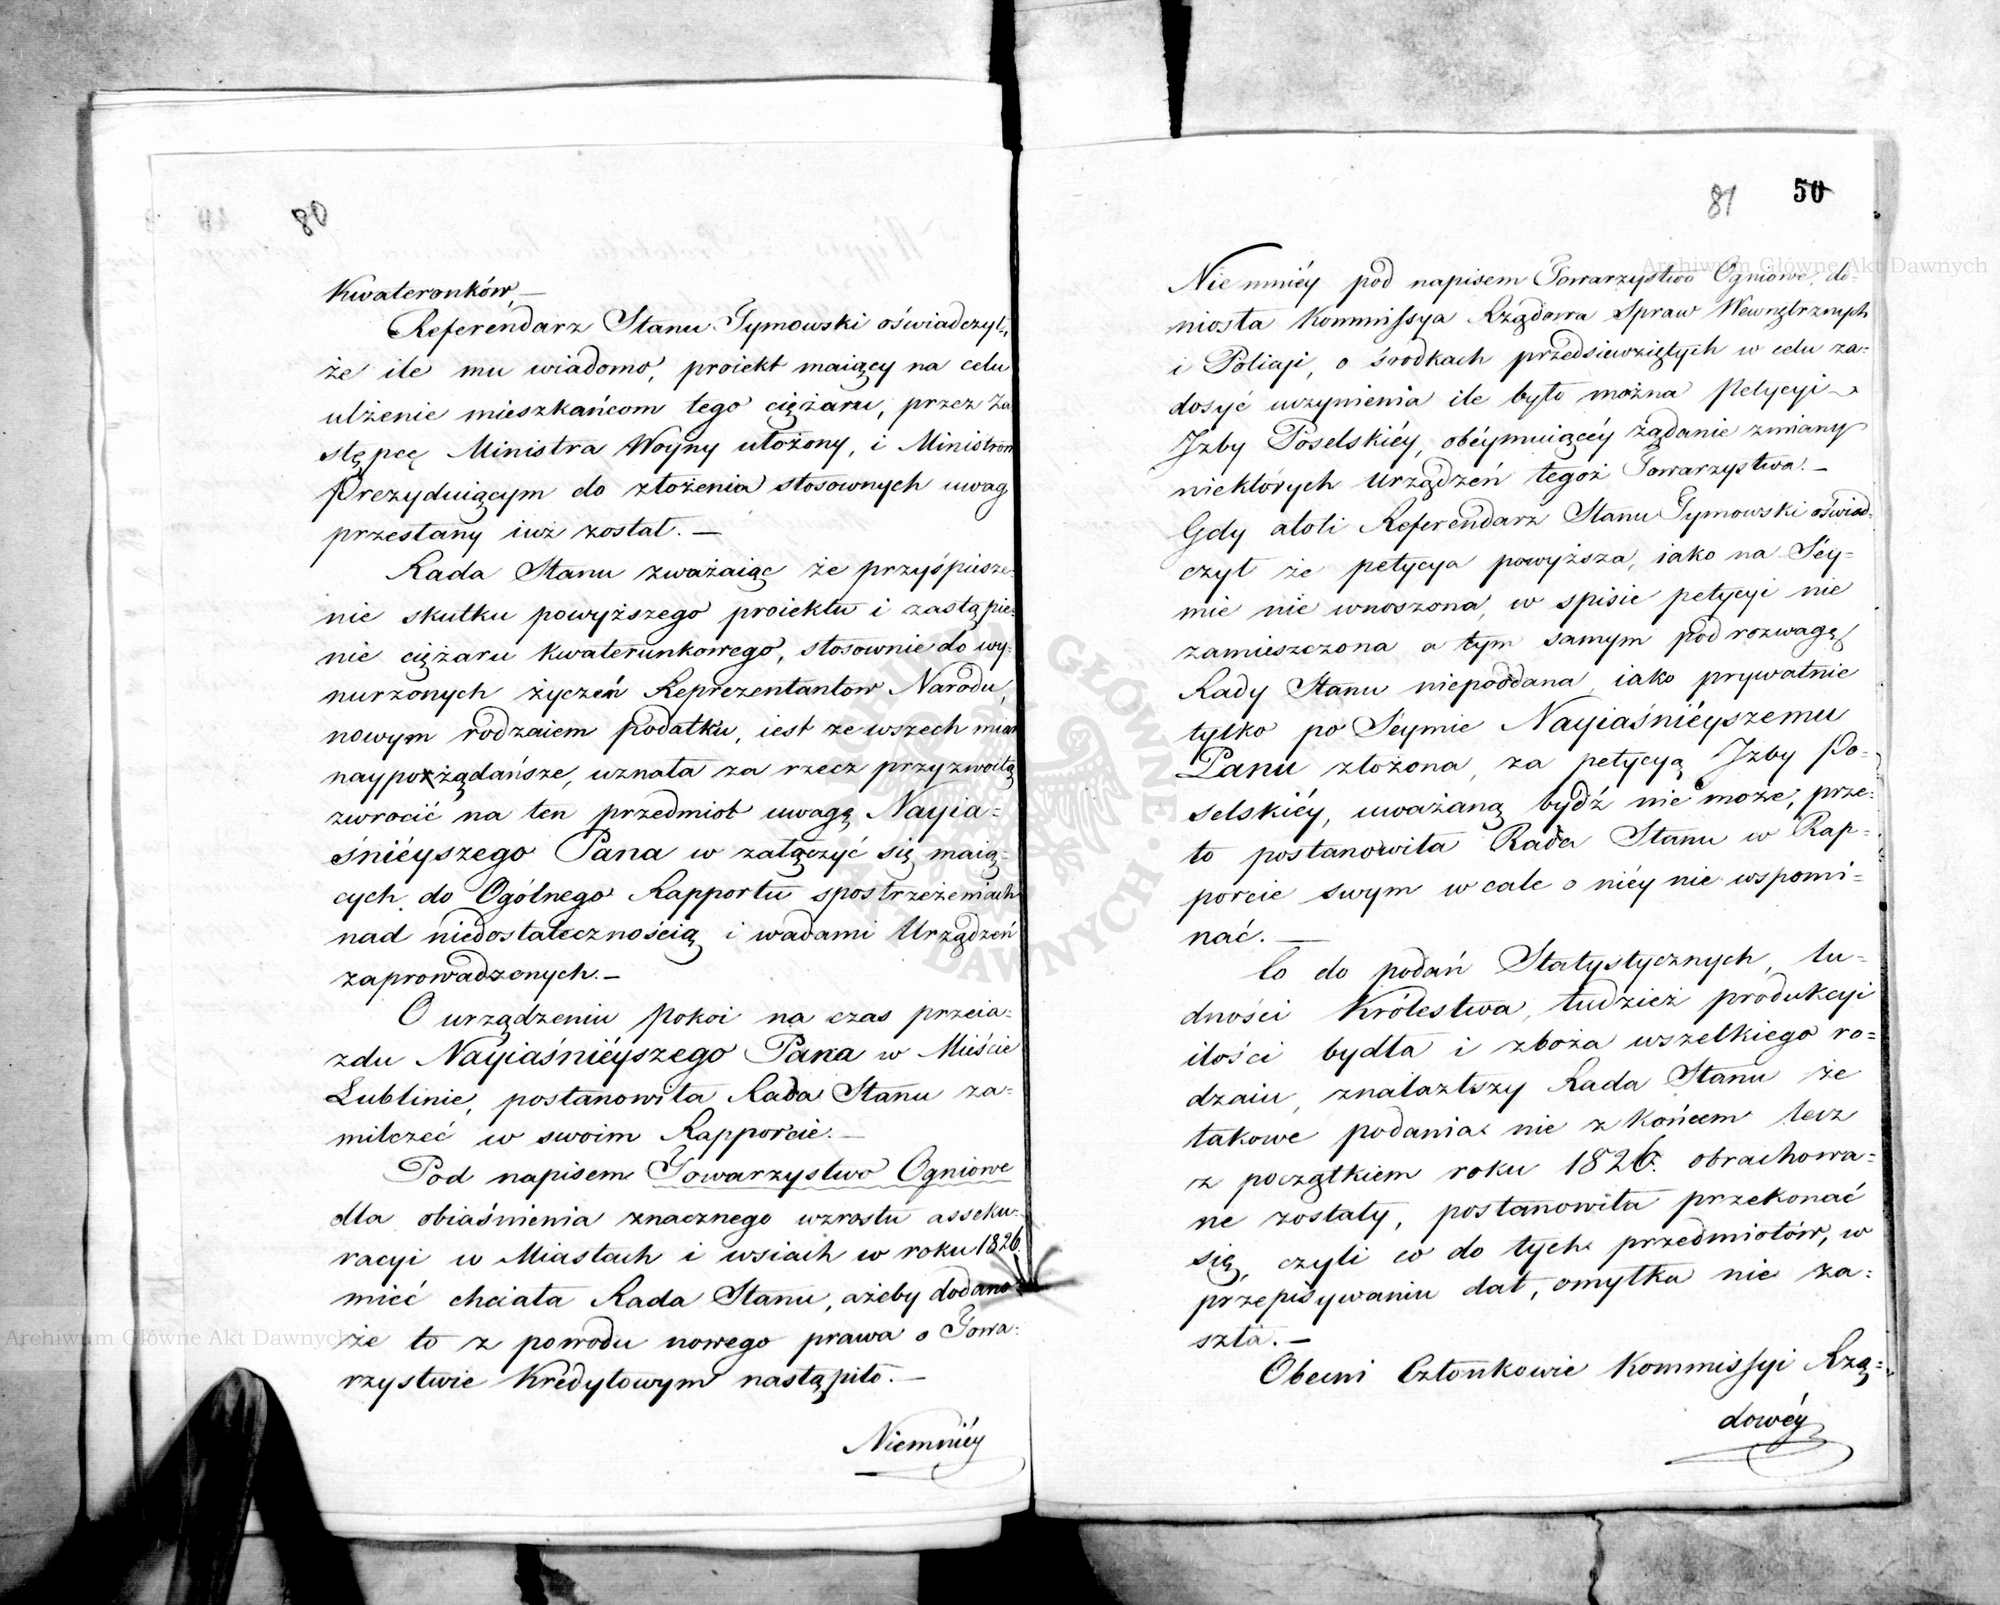 80
Kwaterunków. —
Referendarz Stanu Tymowski oświadczył,
że ile mu wiadomo, proiekt maiący na celu
ulżenie mieszkańcom tego ciężaru, przez Za
stępcę Ministra Woyny ułożony, i Ministrom
Prezyduiącym do złożenia stosownych uwag
przesłany iuż został. —
Rada Stanu zważaiąc że przyśpiesze-
nie skutku powyższego proiektu i zastąpie-
nie ciężaru kwaterunkowego, stosownie do wy-
nurzonych życzeń Reprezentantow Narodu,
nowym rodzaiem podatku, iest ze wszech miar
naypożądańsze, uznała za rzecz przyzwoitą
zwrócić na ten przedmiot uwagę Nayia-
śnieyszego Pana w załączyć się maią-
cych do Ogólnego Rapportu spostrzeżeniach
nad niedostatecznością i wadami Urządzeń
zaprowadzonych. —
O urządzeniu pokoi na czas przeia-
zdu Nayiaśnieyszego Pana w Mieście
Lublinie, postanowiła Rada Stanu za-
milczeć w swoim Rapporcie. —
Pod napisem Towarzystwo Ogniowe
dla obiaśnienia znacznego wzrostu asseku-
racyi w Miastach i wsiach w roku 1826
mieć chciała Rada Stanu, ażeby dodano
że to z powodu nowego prawa o Towa-
rzystwie Kredytowym nastąpiło. —
Niemniéy
81 50
Niemniéy pod napisem Towarzystwo Ogniowe, do-
niosła Kommissya Rządowa Spraw Wewnętrznych
i Policyi, o środkach przedsiewziętych w celu za-
dosyć uczynienia ile było można Petycyi
Izby Poselskiéy, obéymuiącéy żądanie zmiany
niektórych Urządzeń tegoż Towarzystwa. —
Gdy atoli Referendarz Stanu Tymowski oświad-
czył że petycya powyższa, iako na Séy-
mie nie wnoszona, w spisie petycyi nie
zamieszczona a tym samym pod rozwagę
Rady Stanu niepoddana, iako prywatnie
tylko po Séymie Nayiaśniéyszemu
Panu złożona, za petycyą Izby Po-
selskiéy, uważaną bydź nie może, prze-
to postanowiła Rada Stanu w Rap-
porcie swym wcale o niéy nie wspomi-
nać. —
Co do podań Statystycznych, lu-
dności Królestwa, tudzież produkcyi
ilości bydła i zboża wszelkiego ro-
dzaiu, znalazłszy Rada Stanu że
takowe podania nie z końcem lecz
z początkiem roku 1826. obrachowa-
ne zostały, postanowiła przekonać
się, czyli co do tych przedmiotów, w
przepisywaniu dat, omyłka nie za-
szła. —
Obecni Członkowie Kommissyi Rzą-
dowéy
Archiwum Główne Akt Dawnych
Archiwum Główne Akt Dawnych
ARCHIWUM GŁÓWNE AKT DAWNYCH